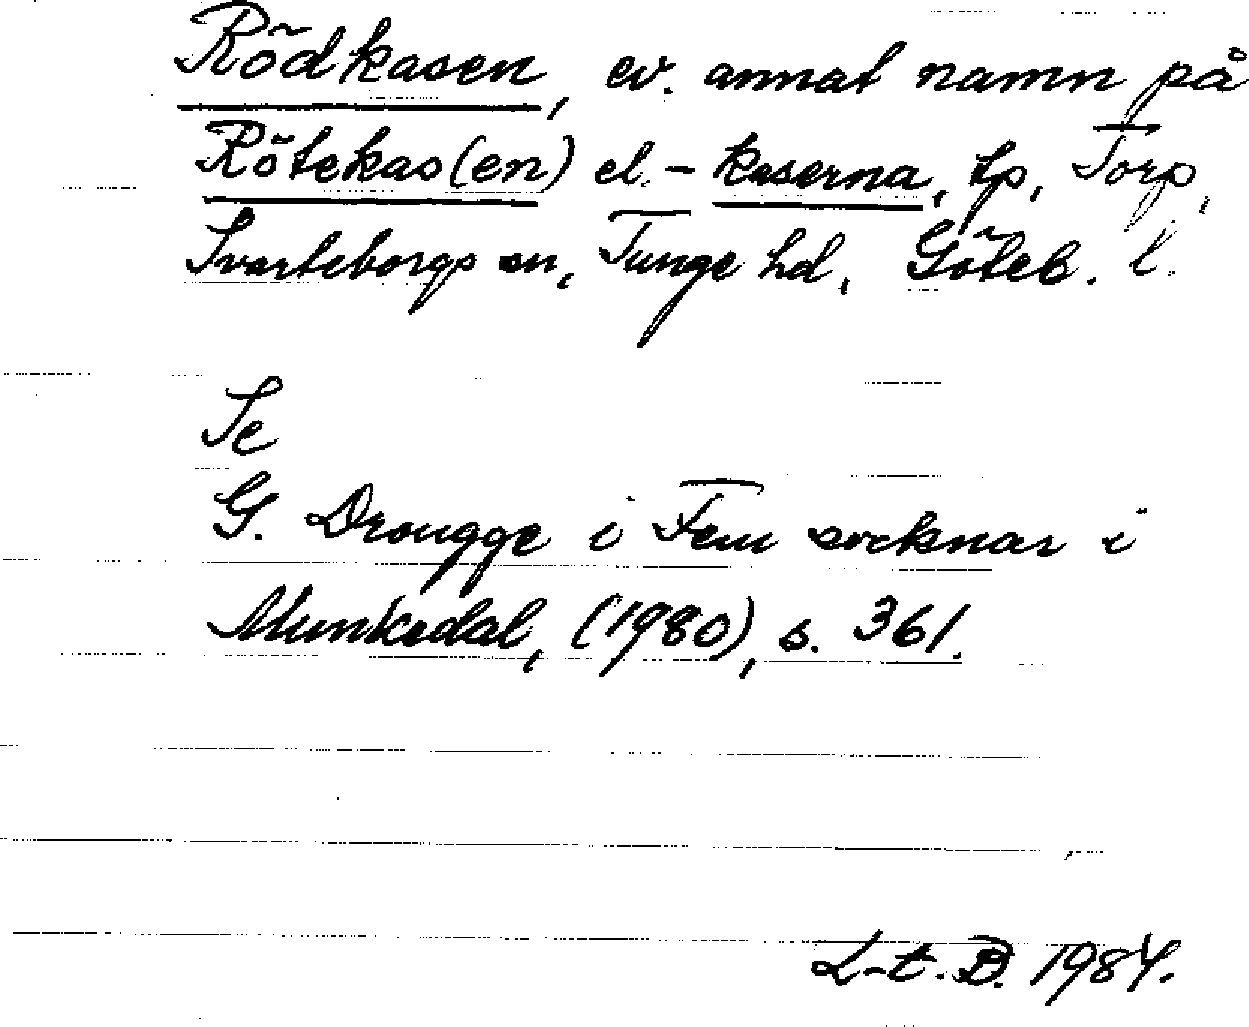 Rödkasen, ev. annat namn på
Rötekas(en) el. -kaserna, tp, Torp,
Svarteborgs sn, Tunge hd, Göteb. l.
Se
G. Drougge i Fem socknar i
Munkedal, (1980), s. 361.
L-t. B. 1984.